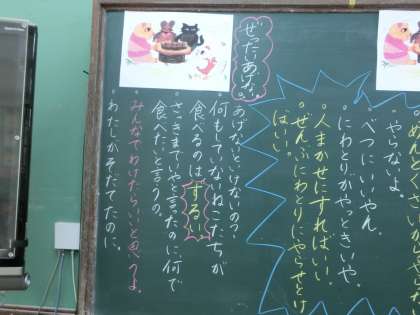 めんどくさいから
やらないよ。
べつにいいやん。
にわとりがやっときいや。
人まかせにすればいい。
ぜんぶにわとりにやらせとけ
ばいい。
ぜったいあげない
あげないといけないの？
何もしていないねこたちが
食べるのはずるい
さっきまでいやと言ったのに何で
食べたいと言うの。
みんなでわけたらいいと思うよ。
わたしがそだてたのに。